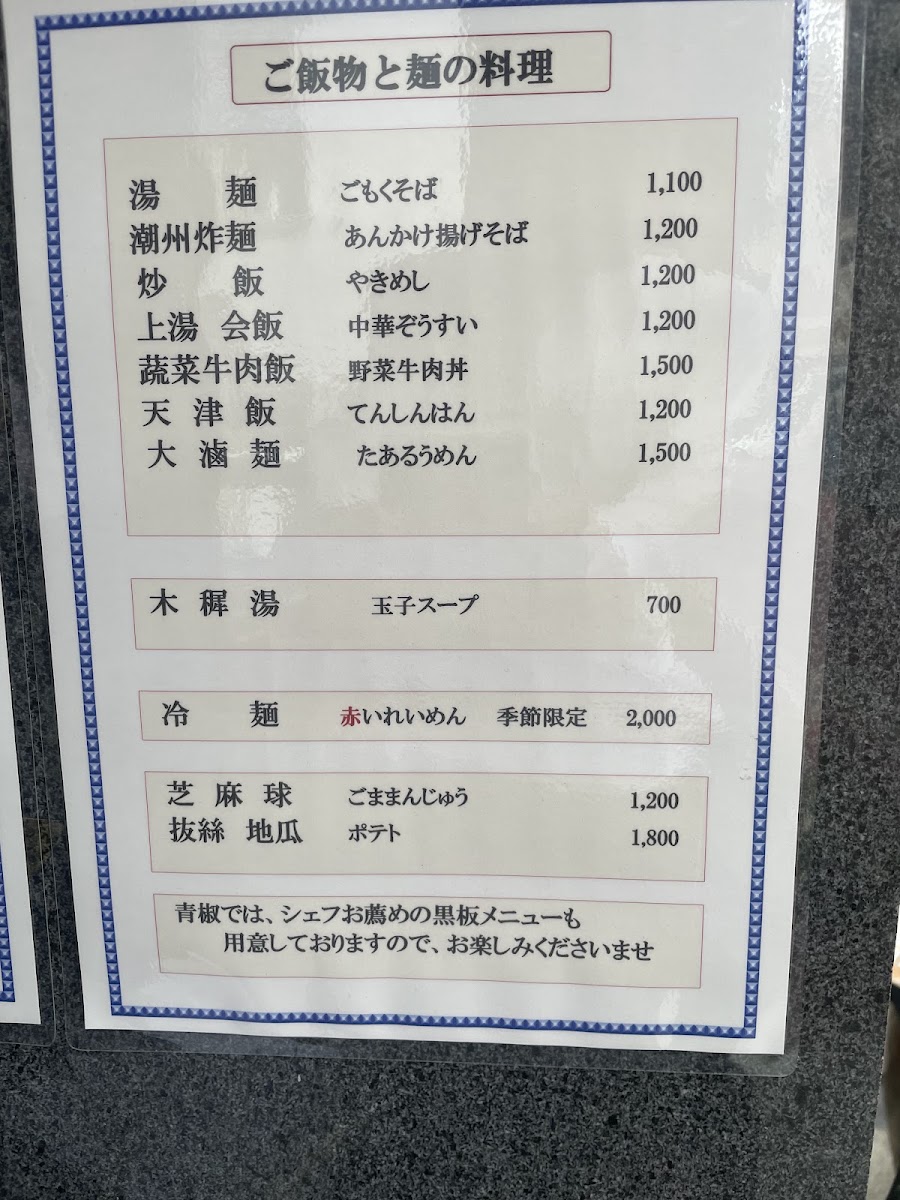 ご飯物と麺の料理
湯 麺 ごもくそば 1,100
潮州炸麺 あんかけ揚げそば 1,200
炒 飯 やきめし 1,200
上湯 会飯 中華ぞうすい 1,200
蔬菜牛肉飯 野菜牛肉丼 1,500
天 津 飯 てんしんはん 1,200
大 滷 麺 たあるうめん 1,500
木 穉 湯 玉子スープ 700
冷 麺 赤いれいめん 季節限定 2,000
芝 麻 球 ごままんじゅう 1,200
抜絲 地瓜 ポテト 1,800
青椒では、シェフお薦めの黒板メニューも
用意しておりますので、お楽しみくださいませ